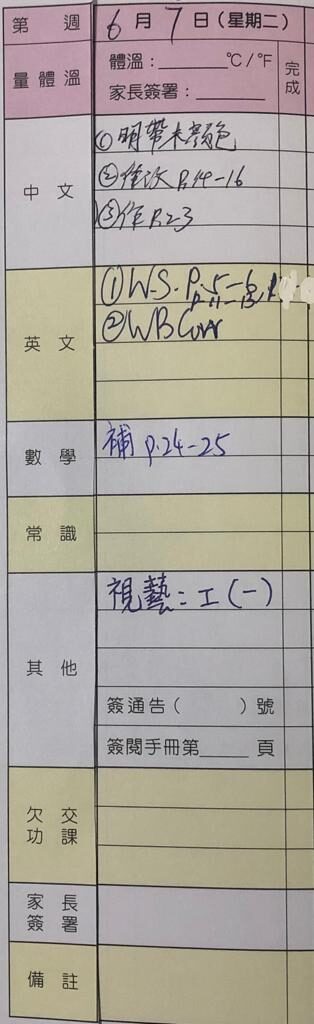 第 週 6 月 7 日 (星期二)
量體溫 體溫:______°C/°F 完成
家長簽署:______
中文 ① 明帶木顏色
② 作改 P.14-16
③ 作 P.2-3
英文 ① W.S. P.5-6,
P.11-13,
② WB Corr
數學 補 P.24-25
常識
其他 視藝:工(一)
簽通告( )號
簽閱手冊第____頁
欠交功課
家長簽署
備註